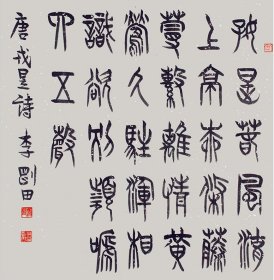 好是萅風湖
上亭柳條藤
蔓繫離情黃
鶯久駐渾相
識欲別頻嗁
四五聲
唐戎昱詩 李剛田